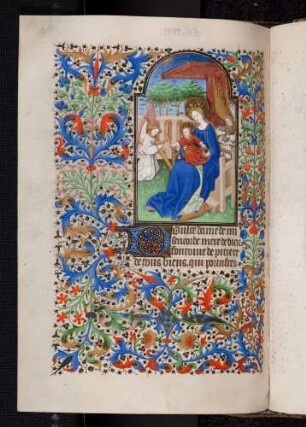 Doulce dame de mi
sericorde mere de dieu
fontaine de pitie et
de tous biens. qui portastes